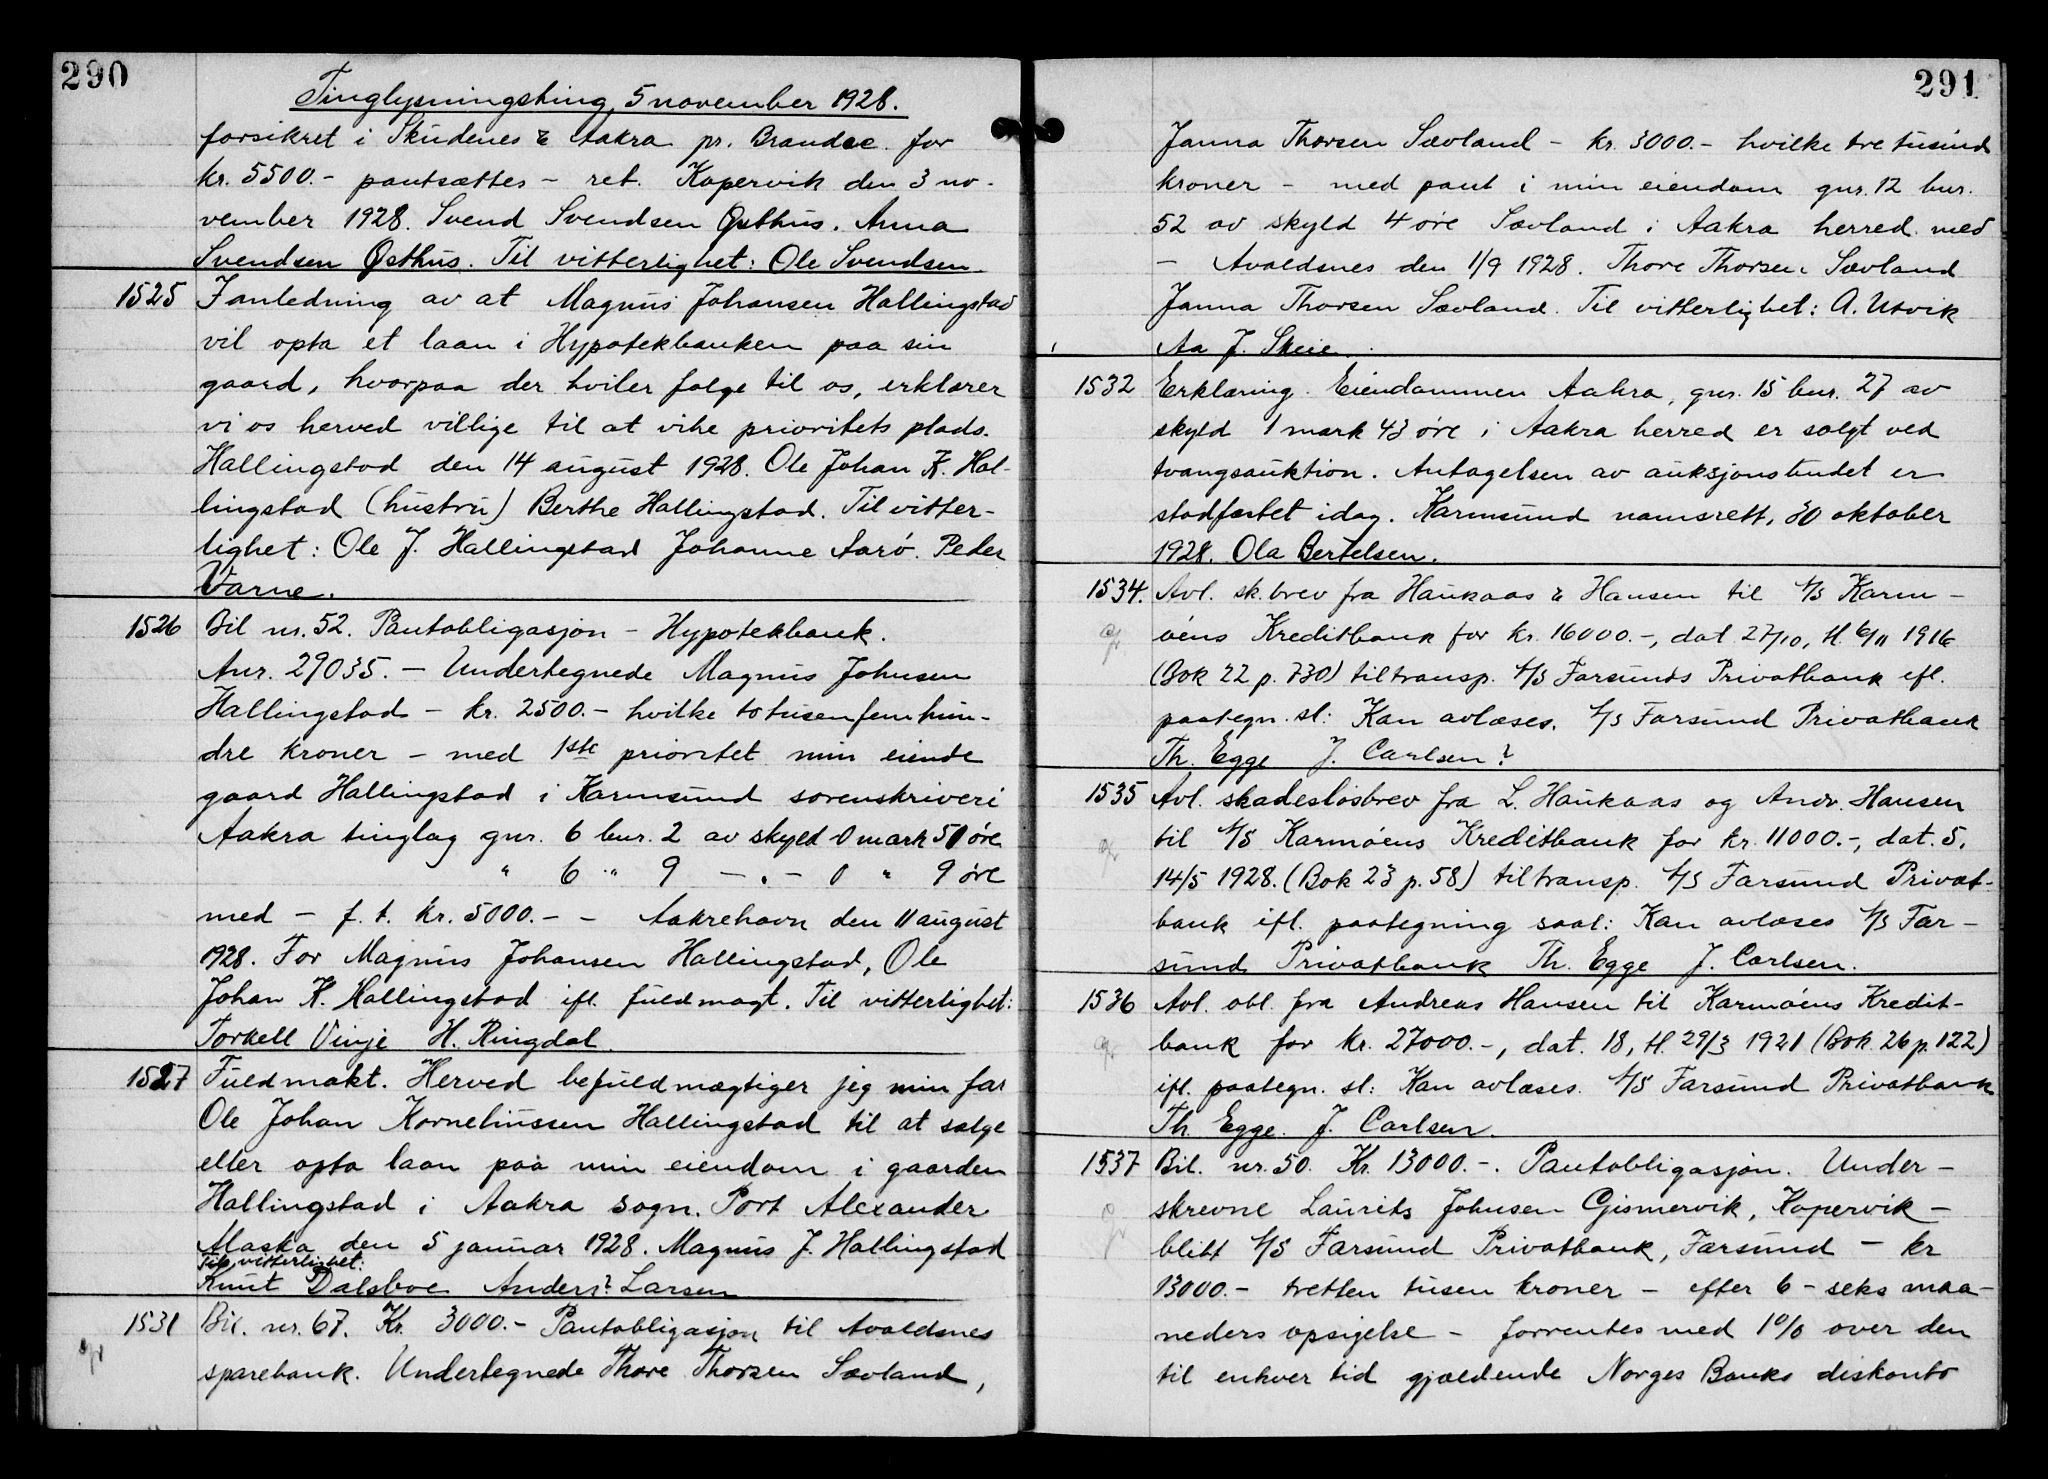 290
Tinglysningsting 5 november 1928.
forsikret i Skudenes & Aakra pr. Brandac. for
kr. 5500.- pantsættes - ret. Kopervik den 3 no-
vember 1928. Svend Svendsen Østhus. Anna
Svendsen Østhus. Til vitterlighet: Ole Svendsen
1525 I anledning av at Magnus Johansen Hallingstad
vil opta et laan i Hypotekbanken paa sin
gaard, hvorpaa der hviler følge til os, erklærer
vi os herved villige til at vike prioritets plads.
Hallingstad den 14 august 1928. Ole Johan K. Hal-
lingstad (hustru) Berthe Hallingstad. Til vitter-
lighet: Ole J. Hallingstad Johanne Aarö. Peder
Varne.
1526 Bil nr. 52. Pantobligasjon - Hypotekbank.
Anr. 29035. - Undertegnede Magnus Johnsen
Hallingstad - kr. 2500.- hvilke totusenfemhun-
dre kroner - med 1ste prioritet min eiende
gaard Hallingstad i Karmsund sorenskriveri
Aakra tinglag gnr. 6 bnr. 2 av skyld 0 mark 51 øre
" 6 " 9 - " - 0 " 9 øre
med - f. t. kr. 5000.- - Aakrehavn den 11 august
1928. For Magnus Johansen Hallingstad, Ole
Johan K. Hallingstad ifl. fuldmagt. Til vitterlighet:
Torkell Vinje H. Ringdal.
1527 Fuldmakt. Herved befuldmægtiger jeg min far
Ole Johan Korneliussen Hallingstad til at sælge
eller opta laan paa min eiendom i gaarden
Hallingstad i Aakra sogn. Port Alexander
Alaska den 5 januar 1928. Magnus J. Hallingstad
Til vitterlighet:
Knut Dalsboe Anders? Larsen
1531 Bil. nr. 67. Kr. 3000.- Pantobligasjon til Avaldsnes
sparebank. Undertegnede Thore Thorsen Sævland,
291
Janna Thorsen Sævland - kr. 3000.- hvilke tre tusind
kroner - med pant i min eiendom gnr. 12 bnr.
52 av skyld 4 øre Sævland i Aakra herred med
- Avaldsnes den 1/9 1928. Thore Thorsen Sævland
Janna Thorsen Sævland. Til vitterlighet: A. Utvik
Aa J. Skeie.
1532 Erklæring. Eiendommen Aakra, gnr. 15 bnr. 27 av
skyld 1 mark 43 øre i Aakra herred er solgt ved
tvangsauktion. Antagelsen av auksjonsbudet er
stadfæstet idag. Karmsund namsrett, 30 oktober
1928. Ola Bertelsen.
1534. Avl. sk.brev fra Haukaas & Hansen til A/S Karm-
öens Kreditbank for kr. 16000.-, dat. 27/10, tl. 6/11 1916
(Bok 22 p. 730) tiltransp. A/S Farsunds Privatbank ifl.
paategn. sl: Kan avlæses. A/S Farsund Privatbank
Th. Egge J. Carlsen?
1535 Avl. skadeslösbrev fra L. Haukaas og Andr. Hansen
til A/S Karmöens Kreditbank for kr. 11000.-, dat. 5.
14/5 1928. (Bok 23 p. 58) tiltransp. A/S Farsund Privat-
bank ifl. paategning saal: Kan avlæses A/S Far-
sund Privatbank Th. Egge J. Carlsen.
1536 Avl. obl. fra Andreas Hansen til Karmöens Kredit-
bank for kr. 27000.-, dat. 18, tl. 29/3 1921 (Bok 26 p. 122)
ifl. paategn. sl: Kan avlæses. A/S Farsund Privatbank
Th. Egge. J. Carlsen.
1537 Bil. nr. 50. Kr. 13000.-. Pantobligasjon. Under-
skrevne Laurits Johnsen Gismervik, Kopervik -
blitt A/S Farsund Privatbank, Farsund - kr
13000.- tretten tusen kroner - efter 6 - seks maa-
neders opsigelse - forrentes med 1% over den
til enhver tid gjældende Norges Banks diskonto